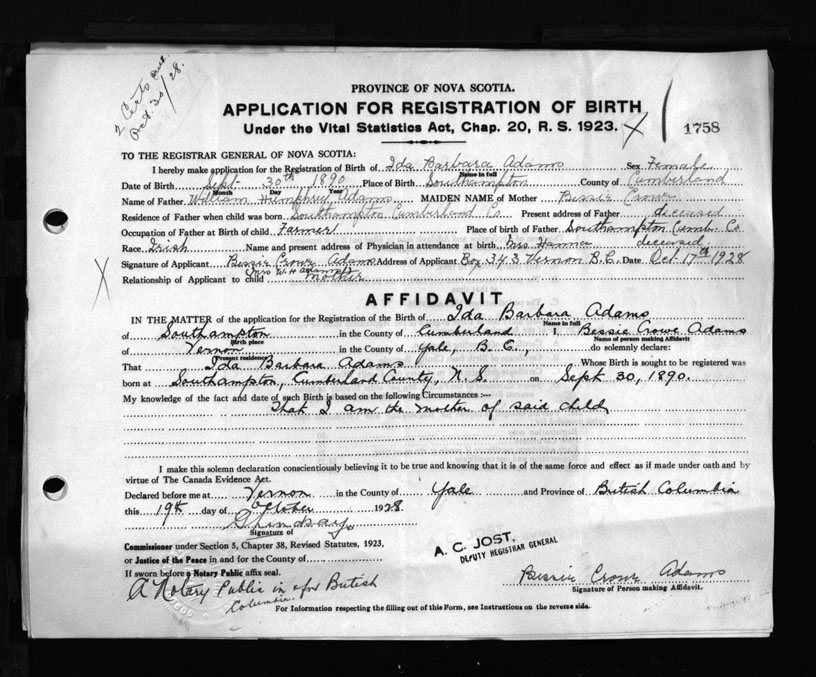 2 Certs
Oct. 30/28.
PROVINCE OF NOVA SCOTIA.
APPLICATION FOR REGISTRATION OF BIRTH
Under the Vital Statistics Act, Chap. 20, R. S. 1923.
X
1758
TO THE REGISTRAR GENERAL OF NOVA SCOTIA:
I hereby make application for the Registration of Birth of Ida Barbara Adams Sex Female
Name in full
Date of Birth Sept 30th 1890 Place of Birth Southampton County of Cumberland
Month Day Year
Name of Father William Humphrey Adams MAIDEN NAME of Mother Bessie Crowe
Residence of Father when child was born Southampton Cumberland Co Present address of Father deceased
Occupation of Father at Birth of child Farmer Place of birth of Father Southampton Cumb. Co
Race Irish Name and present address of Physician in attendance at birth Mrs deceased
Signature of Applicant Bessie Crowe Adams Address of Applicant Box 343 Vernon B.C. Date Oct 17th 1928
(Mrs W. H. Adams)
Relationship of Applicant to child mother
X
AFFIDAVIT
IN THE MATTER of the application for the Registration of the Birth of Ida Barbara Adams
Name in full
of Southampton in the County of Cumberland I, Bessie Crowe Adams
Birth place Name of person making Affidavit
of Vernon in the County of Yale, B.C., do solemnly declare:
Present residence
That Ida Barbara Adams Whose Birth is sought to be registered was
born at Southampton, Cumberland County, N.S. on Sept 30, 1890.
My knowledge of the fact and date of such Birth is based on the following Circumstances :—
That I am the mother of said child
I make this solemn declaration conscientiously believing it to be true and knowing that it is of the same force and effect as if made under oath and by
virtue of The Canada Evidence Act.
Declared before me at Vernon in the County of Yale and Province of British Columbia
this 19th day of October 1928
Signature of
Commissioner under Section 5, Chapter 38, Revised Statutes, 1923,
or Justice of the Peace in and for the County of
If sworn before a Notary Public affix seal.
A Notary Public in & for British
Columbia.
A. C. JOST,
DEPUTY REGISTRAR GENERAL
Bessie Crowe Adams
Signature of Person making Affidavit.
For Information respecting the filling out of this Form, see Instructions on the reverse side.